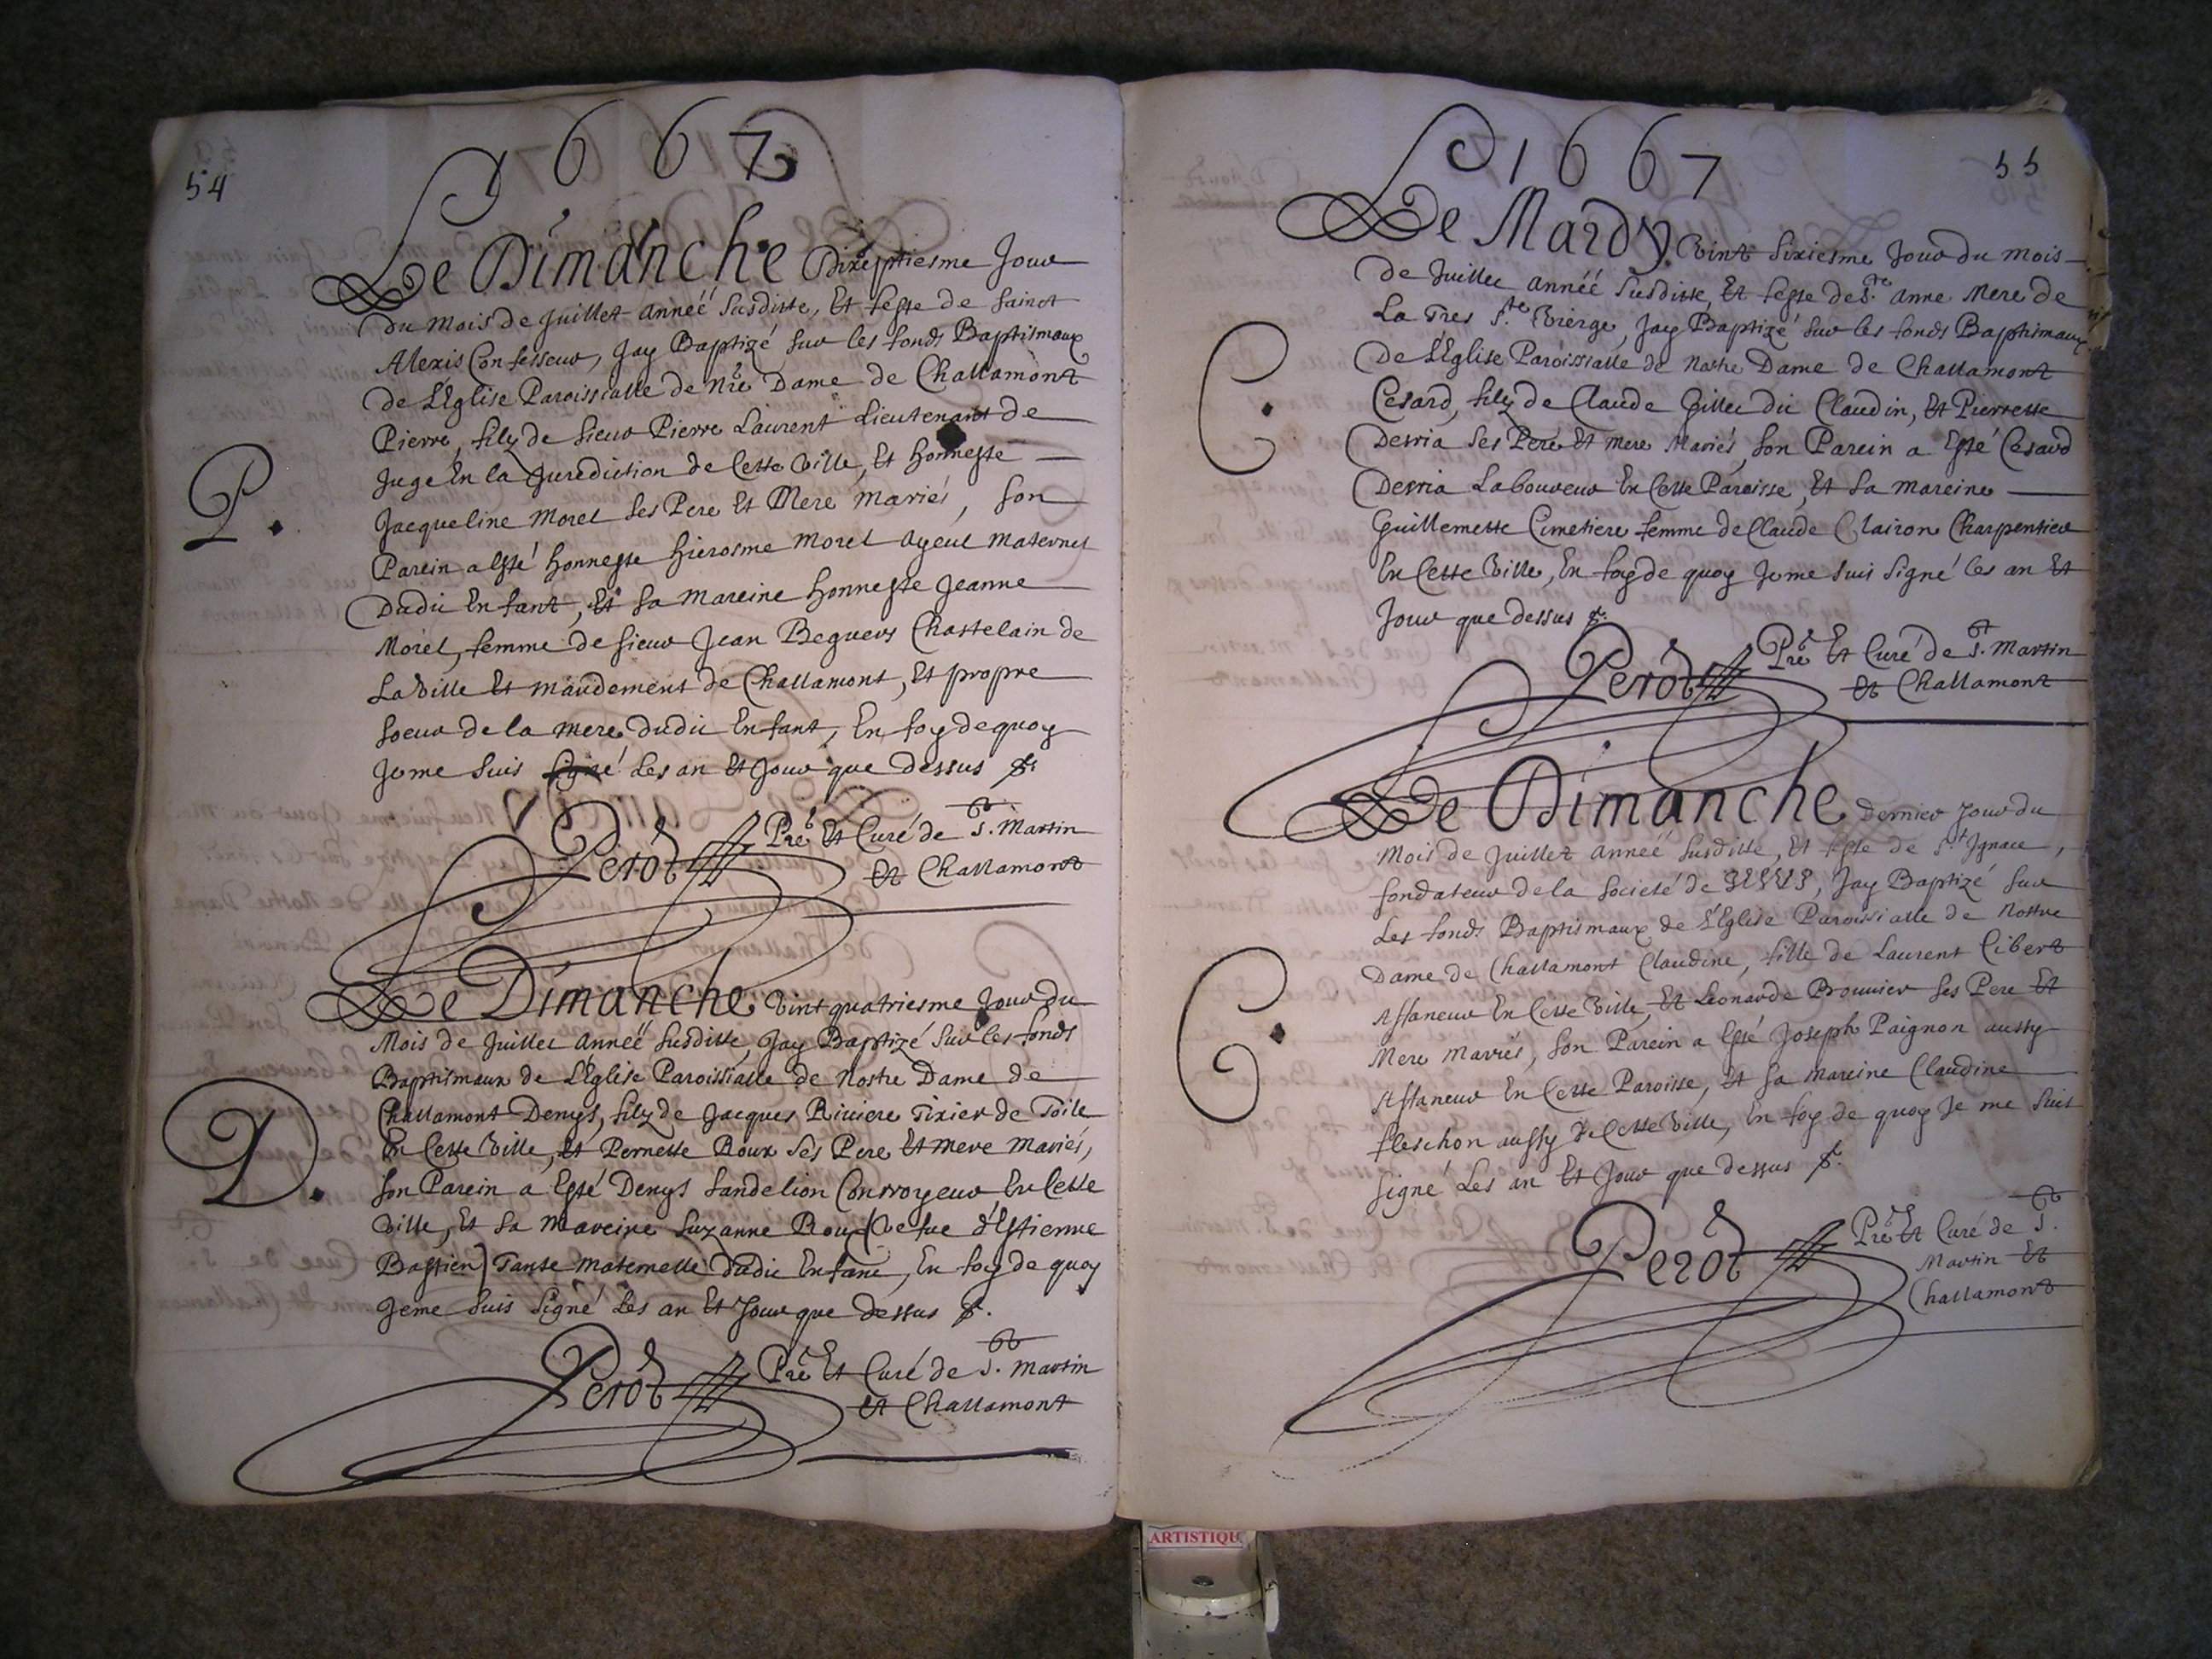 54
1667
Le Dimanche Dixseptiesme Jour
du mois de Juillet année susditte, Et feste de sainct
Alexis Confesseur, Jay Baptizé sur les fonds Baptismaux
de L'Eglise Paroissialle de Nre Dame de Challamont
Pierre, filz de sieur Pierre Laurent Lieutenant de
Juge En la Jurediction de Cette ville, Et honneste
Jacqueline Morel ses Pere Et Mere mariés, son
Parein a Esté honneste hierosme Morel ayeul maternel
Dudic Enfant, Et sa mareine honneste Jeanne
Morel, femme de sieur Jean Beguers Chastelain de
La ville Et mandement de Challamont, Et propre
soeur de la mere dudic Enfant, En foy de quoy
Je me suis signé Les an Et Jour que dessus &.
P.
Perod Pre Et Curé de St. Martin
Et Challamont
Le Dimanche vint quatriesme Jour du
Mois de Juillec année susditte, Jay Baptizé sur les fonds
Baptismaux de L'Eglise Paroissialle de Nostre Dame de
Challamont Denys, filz de Jacques Riviere Tixier de Toile
En Cette ville, Et Pernette Roux ses Pere Et mere mariés,
son Parein a Esté Denys Sandelion Conrroyeur En Cette
ville, Et sa Mareine Suzanne Roux (vefue d'Estienne
Bastien) Tante maternelle dudic Enfant, En foy de quoy
Je me suis signé Les an Et Jour que dessus &.
D.
Perod Pre Et Curé de St. Martin
Et Challamont
1667
55
Le Mardy vint sixiesme Jour du mois
de Juillec année susditte, Et feste de Ste. Anne Mere de
La Tres Ste. Vierge, Jay Baptizé sur les fonds Baptismaux
De L'Eglise Paroissialle de Nostre Dame de Challamont
Cesard, filz de Claude Gillec dic Claudin, Et Pierrette
Desria ses Pere Et mere Mariés, son Parein a Esté Cesard
Desria Laboureur En Cette Paroisse, Et sa mareine
Guillemette Cimetiere femme de Claude Clairon Charpentier
En Cette ville, En foy de quoy Je me suis signé les an Et
Jour que dessus &.
C.
Perod Pre Et Curé de St. Martin
Et Challamont
Le Dimanche dernier Jour du
mois de Juillet année susditte, Et feste de St. Ignace,
fondateur de la societé de JESUS, Jay Baptizé sur
Les fonds Baptismaux de L'Eglise Paroissialle de Nostre
Dame de Challamont Claudine, fille de Laurent Cibert
Affaneur En Cette ville, Et Leonarde Prounier ses Pere Et
Mere mariés, son Parein a Esté Joseph Paignon aussy
Affaneur En Cette Paroisse, Et sa mareine Claudine
fleschon aussy de Cette ville, En foy de quoy Je me suis
signé Les an Et Jour que dessus &.
C.
Perod Pre Et Curé de St.
Martin Et
Challamont
ARTISTIQU